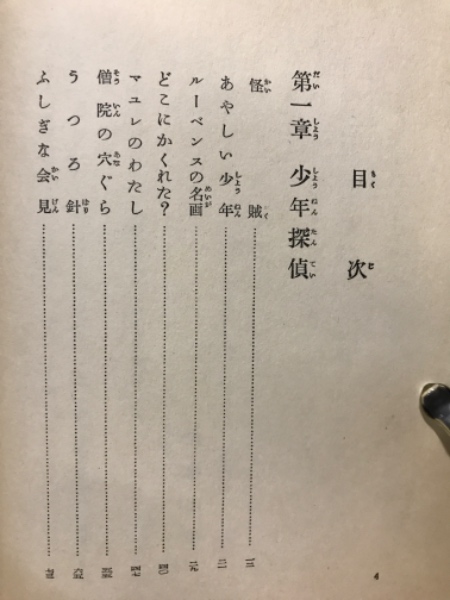 目次
第一章 少年探偵
怪賊
あやしい少年
ルーベンスの名画
どこにかくれた?
マユレのわたし
僧院の穴ぐら
うつろ針
ふしぎな会見
4